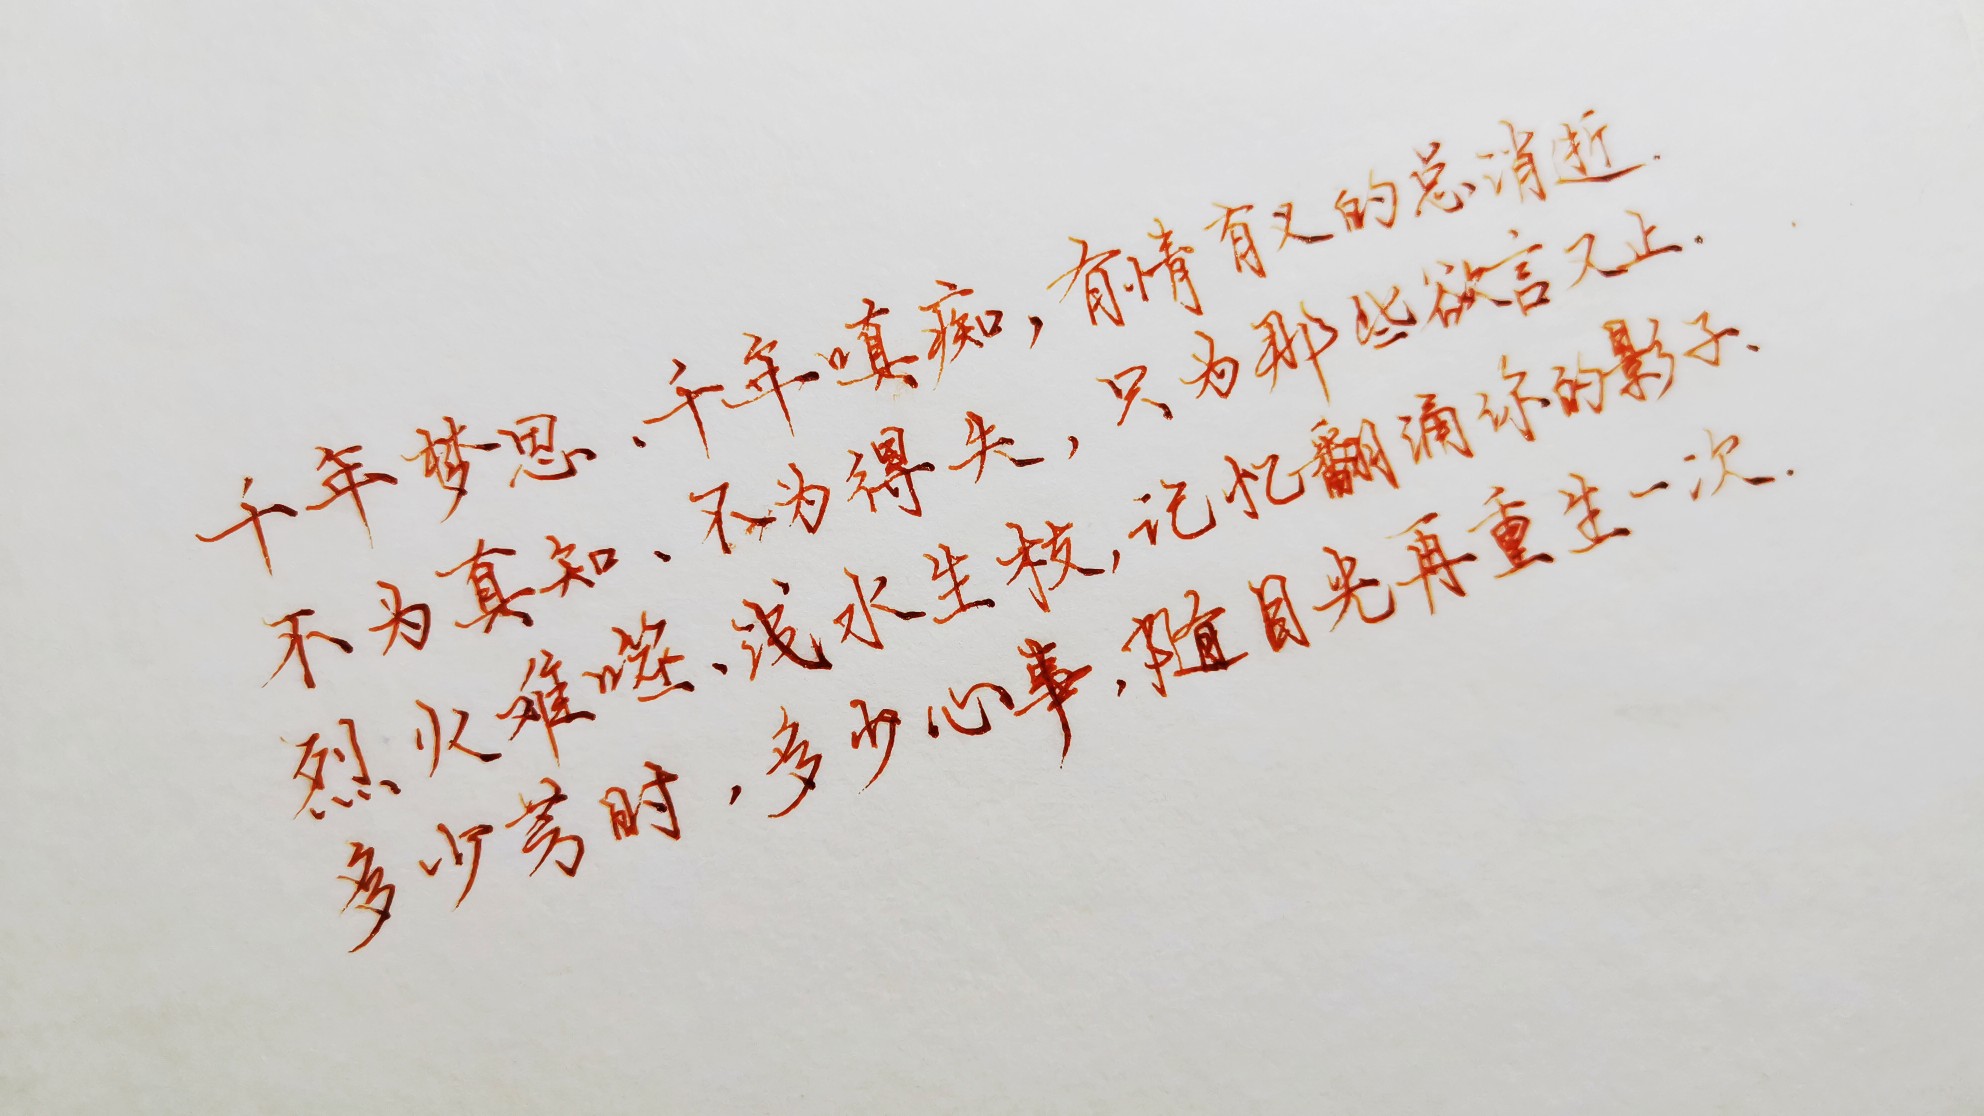 千年梦思、千年嗔痴，有情有义的总消逝.
不为真知、不为得失，只为那些欲言又止.
烈火难噬、浅水生枝，记忆翻涌你的影子、
多少芳时，多少心事，随目光再重生一次.